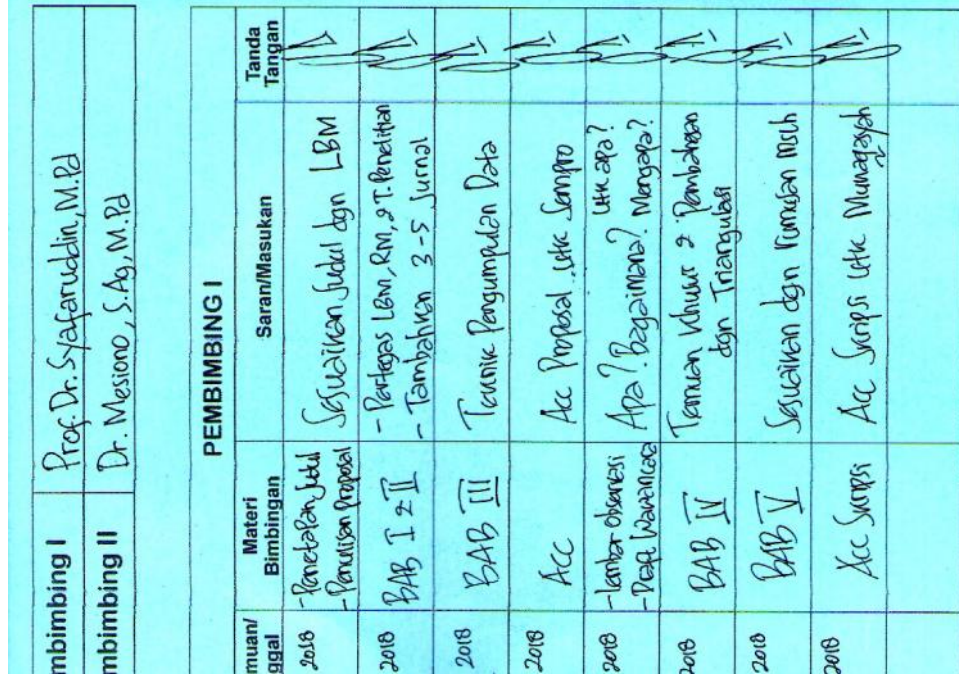 mbimbing I Prof. Dr. Syafaruddin, M.Pd
mbimbing II Dr. Mesiono, S.Ag, M.Pd
PEMBIMBING I
muan/
ggal
Materi
Bimbingan
Saran/Masukan
Tanda
Tangan
2018
- Penetapan Judul
- Penulisan Proposal
Sesuaikan Judul dgn LBM
2018
BAB I & II
- Pertegas LBM, RM, & T. Penelitian
- Tambahkan 3-5 Jurnal
2018
BAB III
Teknik Pengumpulan Data
2018
Acc
Acc Proposal utk Sempro
2018
- Lembar Observasi
- Draft Wawancara
utk apa?
Apa? Bagaimana? Mengapa?
2018
BAB IV
Temuan Khusus & Pembahasan
dgn Triangulasi
2018
BAB V
Sesuaikan dgn rumusan mslh
2018
Acc Skripsi
Acc Skripsi utk Munaqasyah